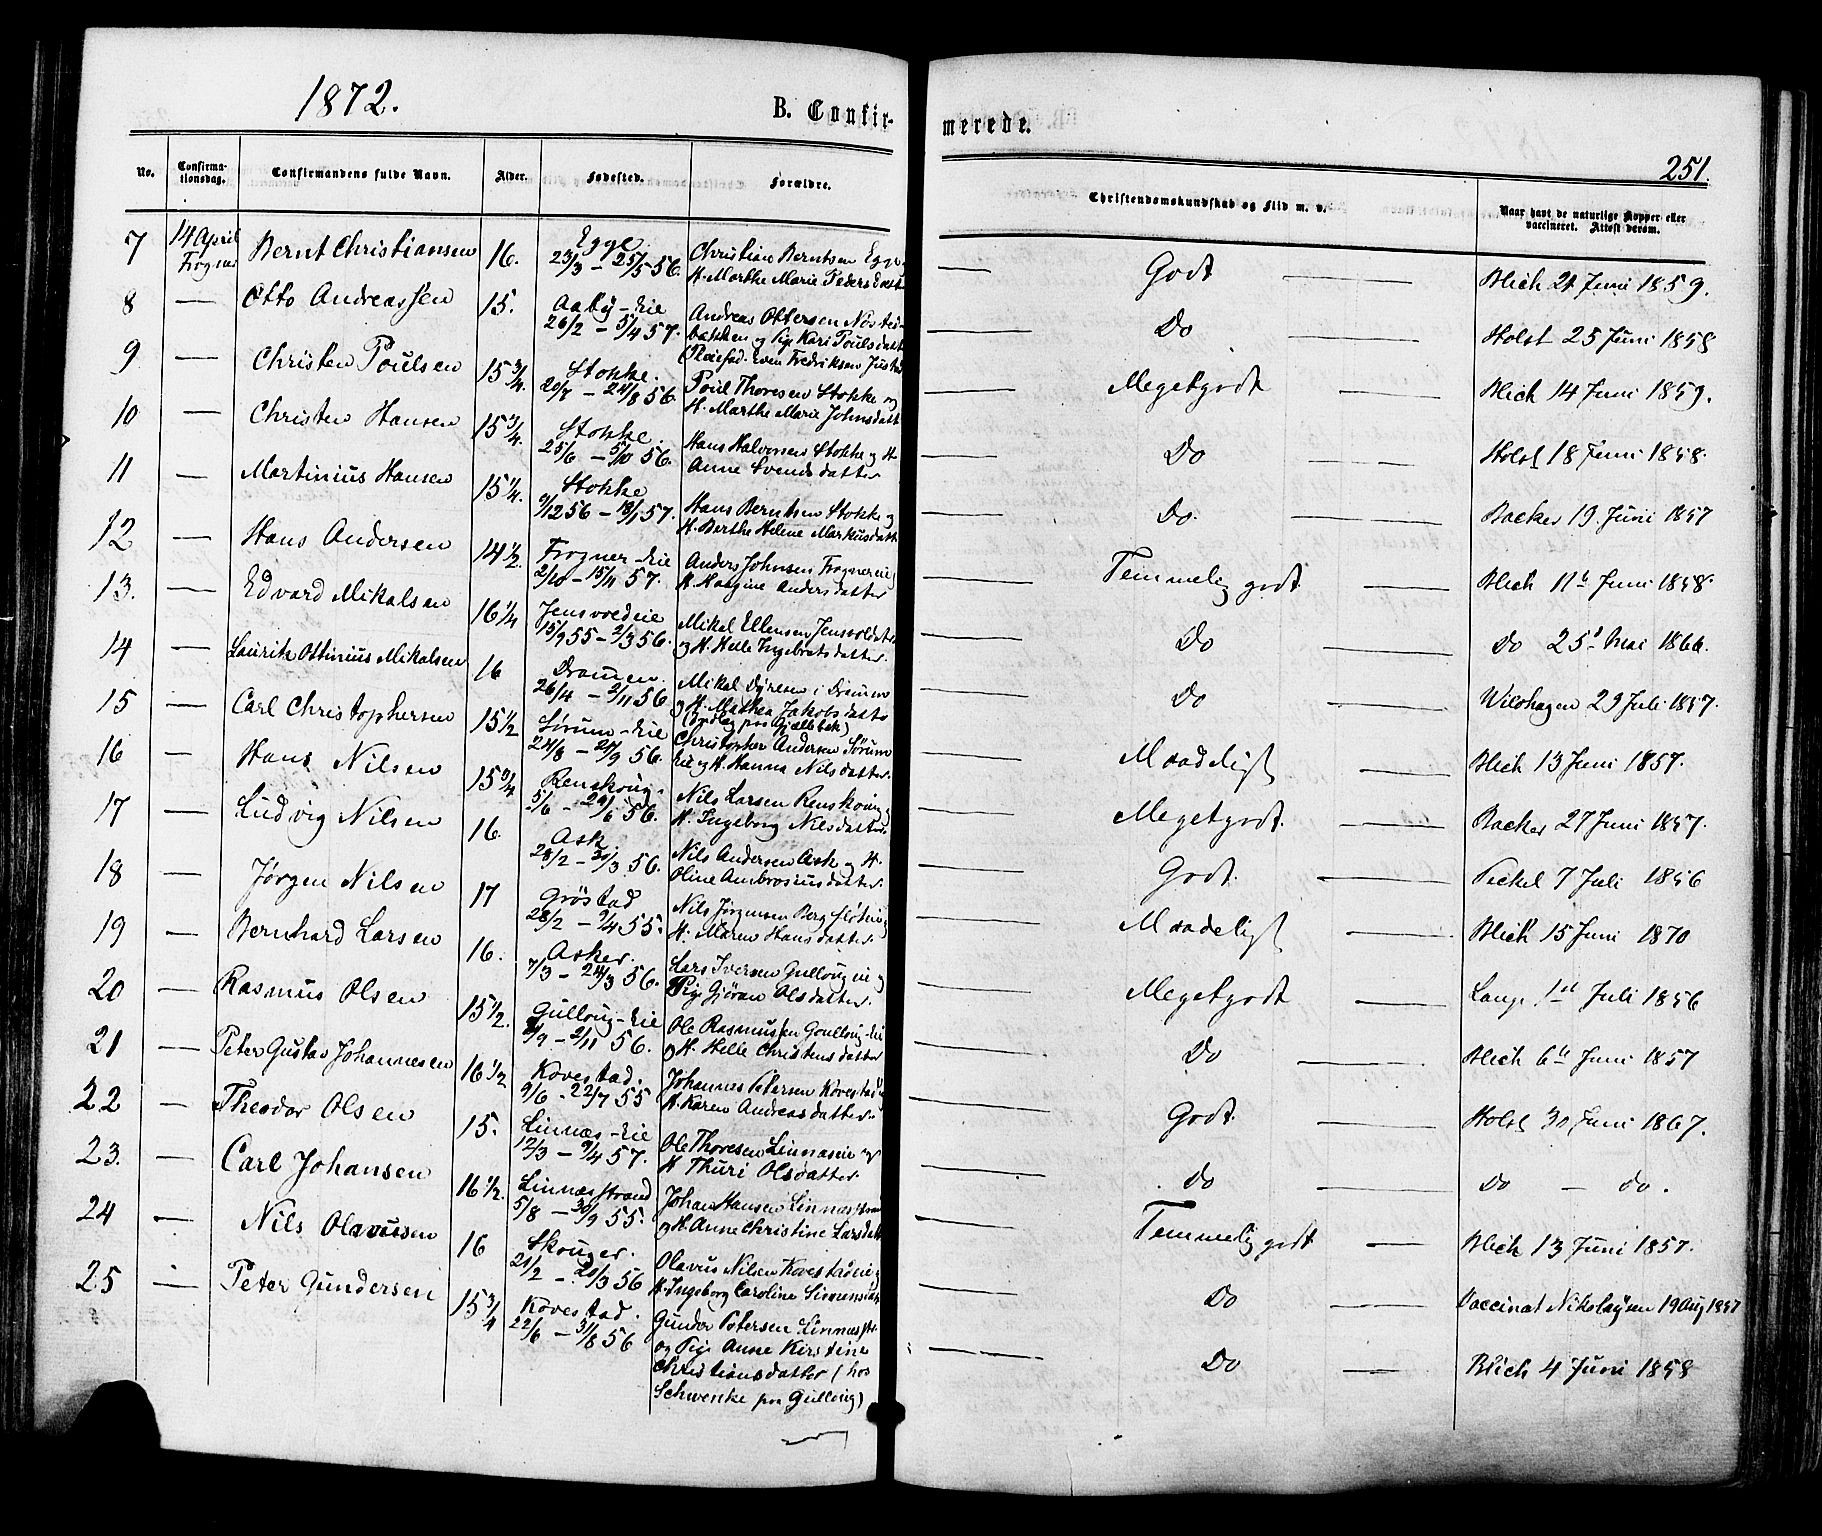 1872.
B. Confir-
merede.
251.
No.
Confirma-
tionsdag.
Confirmandens fulde Navn.
Alder.
Fødested.
Forældre.
Christendomskundskab og Flid m. v.
Naar havt de naturlige Kopper eller
vaccineret. Attest derom.
7 14 April Frogner Bernt Christiansen 16. Egge. 23/3 – 25/5 56. Christian Berntsen Egge H. Marthe Marie Pedersdatt — Godt — Blich 21 Juni 1859.
8 — Otto Andreassen 15. Aaby-Eie 26/2 – 5/4 57. Andreas Ottersen Nøsted- bakken og Pige Kari Poulsdatt (Pleiefad. Even Fredriksen — Do — Holst 25 Juni 1858
9 — Christen Poulsen 15 3/4. Stokke. – 24/8 56. Poul Thoresen Stokke og H. Marthe Marie Johnsdatt — Megetgodt — Blich 14 Juni 1859.
10 — Christen Hansen 15 3/4. Stokke. 25/6 – 5/10 56. Hans Halvorsen Stokke og H. Anne Svendsdatter — Do — Holst 18 Juni 1858.
11 — Martinius Hansen 15 1/4. Stokke 9/12 56 – 18/1 57. Hans Berntsen Stokke og H. Berthe Helene Markusdatt — Do. — Backer 19 Juni 1857
12 — Hans Andersen 14 1/2. Frogner-Eie 2/10 – 15/11 57. Anders Johnsen Frognereie H. Maagine Andersdatter — Temmelig godt — Blich 11te Juni 1858.
13. — Edvard Mikalsen 16 1/4 Jensvoldeie 15/9 55 – 2/3 56. Mikal Ellensen Jensvoldeie og H. Helle Ingebretsdatter. — Do — Do 25' Mai 1866.
14 — Lauritz Ottinius Mikalsen 16 Dramen. 26/4 – 2/11 56 Mikal Dyresen i Dramen og H. Mathea Jakobsdatte — Do — Wilshagen 29 Juli 1857.
15 — Carl Christophersen 15 1/2 Sørum-Eie 24/8 – 21/9 56. Christopher Andersen Sørum Eie og H. Hanna Nilsdatter. — Maadeligt — Blich 13 Juni 1857.
16 — Hans Nilsen 15 3/4 Renskoug. 5/6 – 29/6 56. Nils Larsen Renskoug H. Ingeborg Nilsdatter — Megetgodt. — Backer 27 Juni 1857.
17 — Ludvig Nilsen 16. Ask. 28/2 – 30/3 56. Nils Andersen Ask og H. Oline Ambrosiusdatter. — Godt. — Peckel 7 Juli 1856
18 — Jørgen Nilsen 17 Grøstad 28/2 – 9/4 55. Nils Jørgensen Berg H. Maren Hansdatter. — Maadeligt — Blich 15 Juni 1870
19 — Bernhard Larsen 16. Asker. 7/3 – 24/3 56. Lars Iversen Gulloug eie og Pige Gjøran Olsdatter. — Megetgodt — Lange 1st Juli 1856
20 — Rasmus Olsen 15 1/2. Gulloug-Eie /9 – 2/11 56. Ole Rasmussen Goulloug-Eie og H. Helle Christensdatter — Do — Blich 6te Juni 1857
21 — Peter Gustav Johannesen 16 1/2 Kovestad. 9/6 - 22/7 55 Johannes Petersen Kovestad H. Karen Andreasdatter. — Godt. — Holst 30 Juni 1867.
22 — Theodor Olsen 15. Linnæs-Eie 12/3 – 9/4 57. Ole Thoresen Linnæseie og H Thuri Olsdatter. — Do — Do – do.
23. — Carl Johansen 16 1/2. Linnæsstrand 5/8 – 30/9 55. Johan Hansen Linnæsstrand og H. Anne Christine Larsdatt — Temmelig godt — Blich 13 Juni 1857.
24 — Nils Olavusen 16 Skouger. 21/2 – 20/3 56 Olavus Nilsen Kovestadeie H. Ingeborg Caroline Simensdat — Do — Vaccinat Nikolaysen 19 Aug 1857
25 — Peter Gundersen 15 3/4 Kovestad. 22/6 – 31/8 56 Gunder Petersen Linnæsstr. og Pige Anne Kirstine Christiansdatter (hos Schwenke paa Gulloug) — Do — Blich 4 Juni 1858